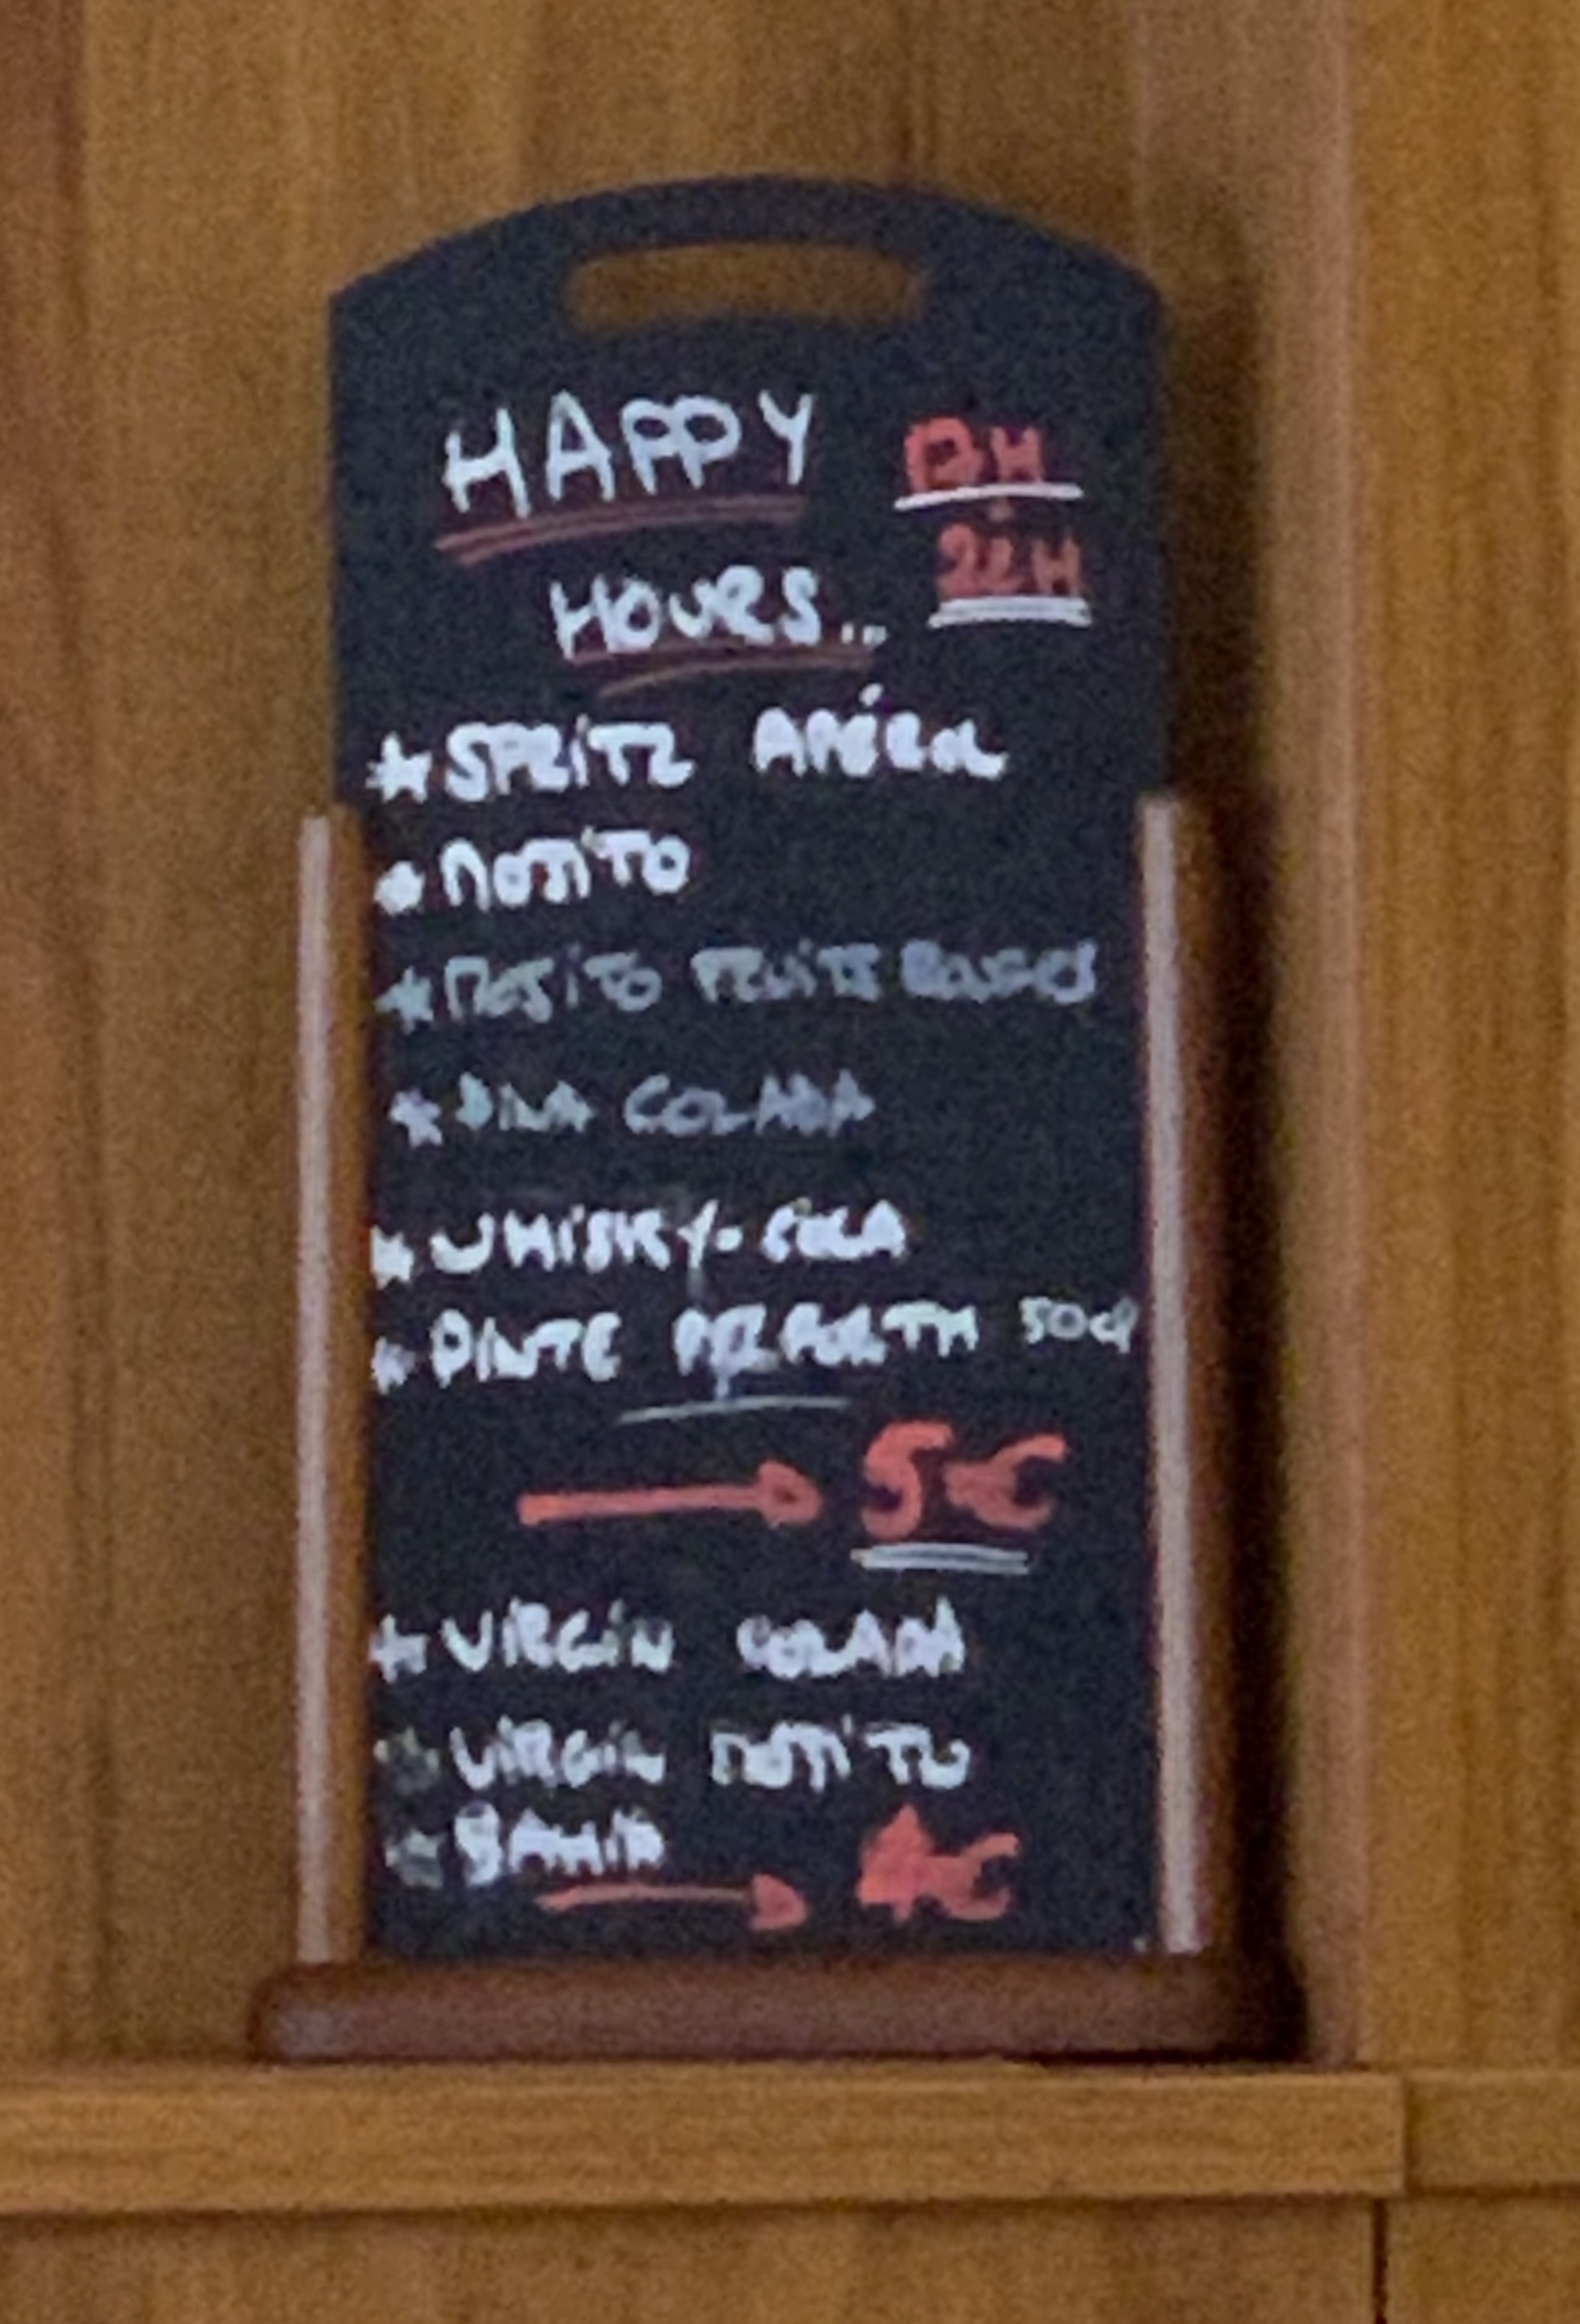 HAPPY
HOURS..
22H
* SPRITZ APÉROL
* MOJITO
* MOJITO FRUITS ROUGES
* PINA COLADA
* WHISKY-COLA
* PINTE 50CL
5€
* VIRGIN COLADA
* VIRGIN MOJITO
* BAHIA
4€